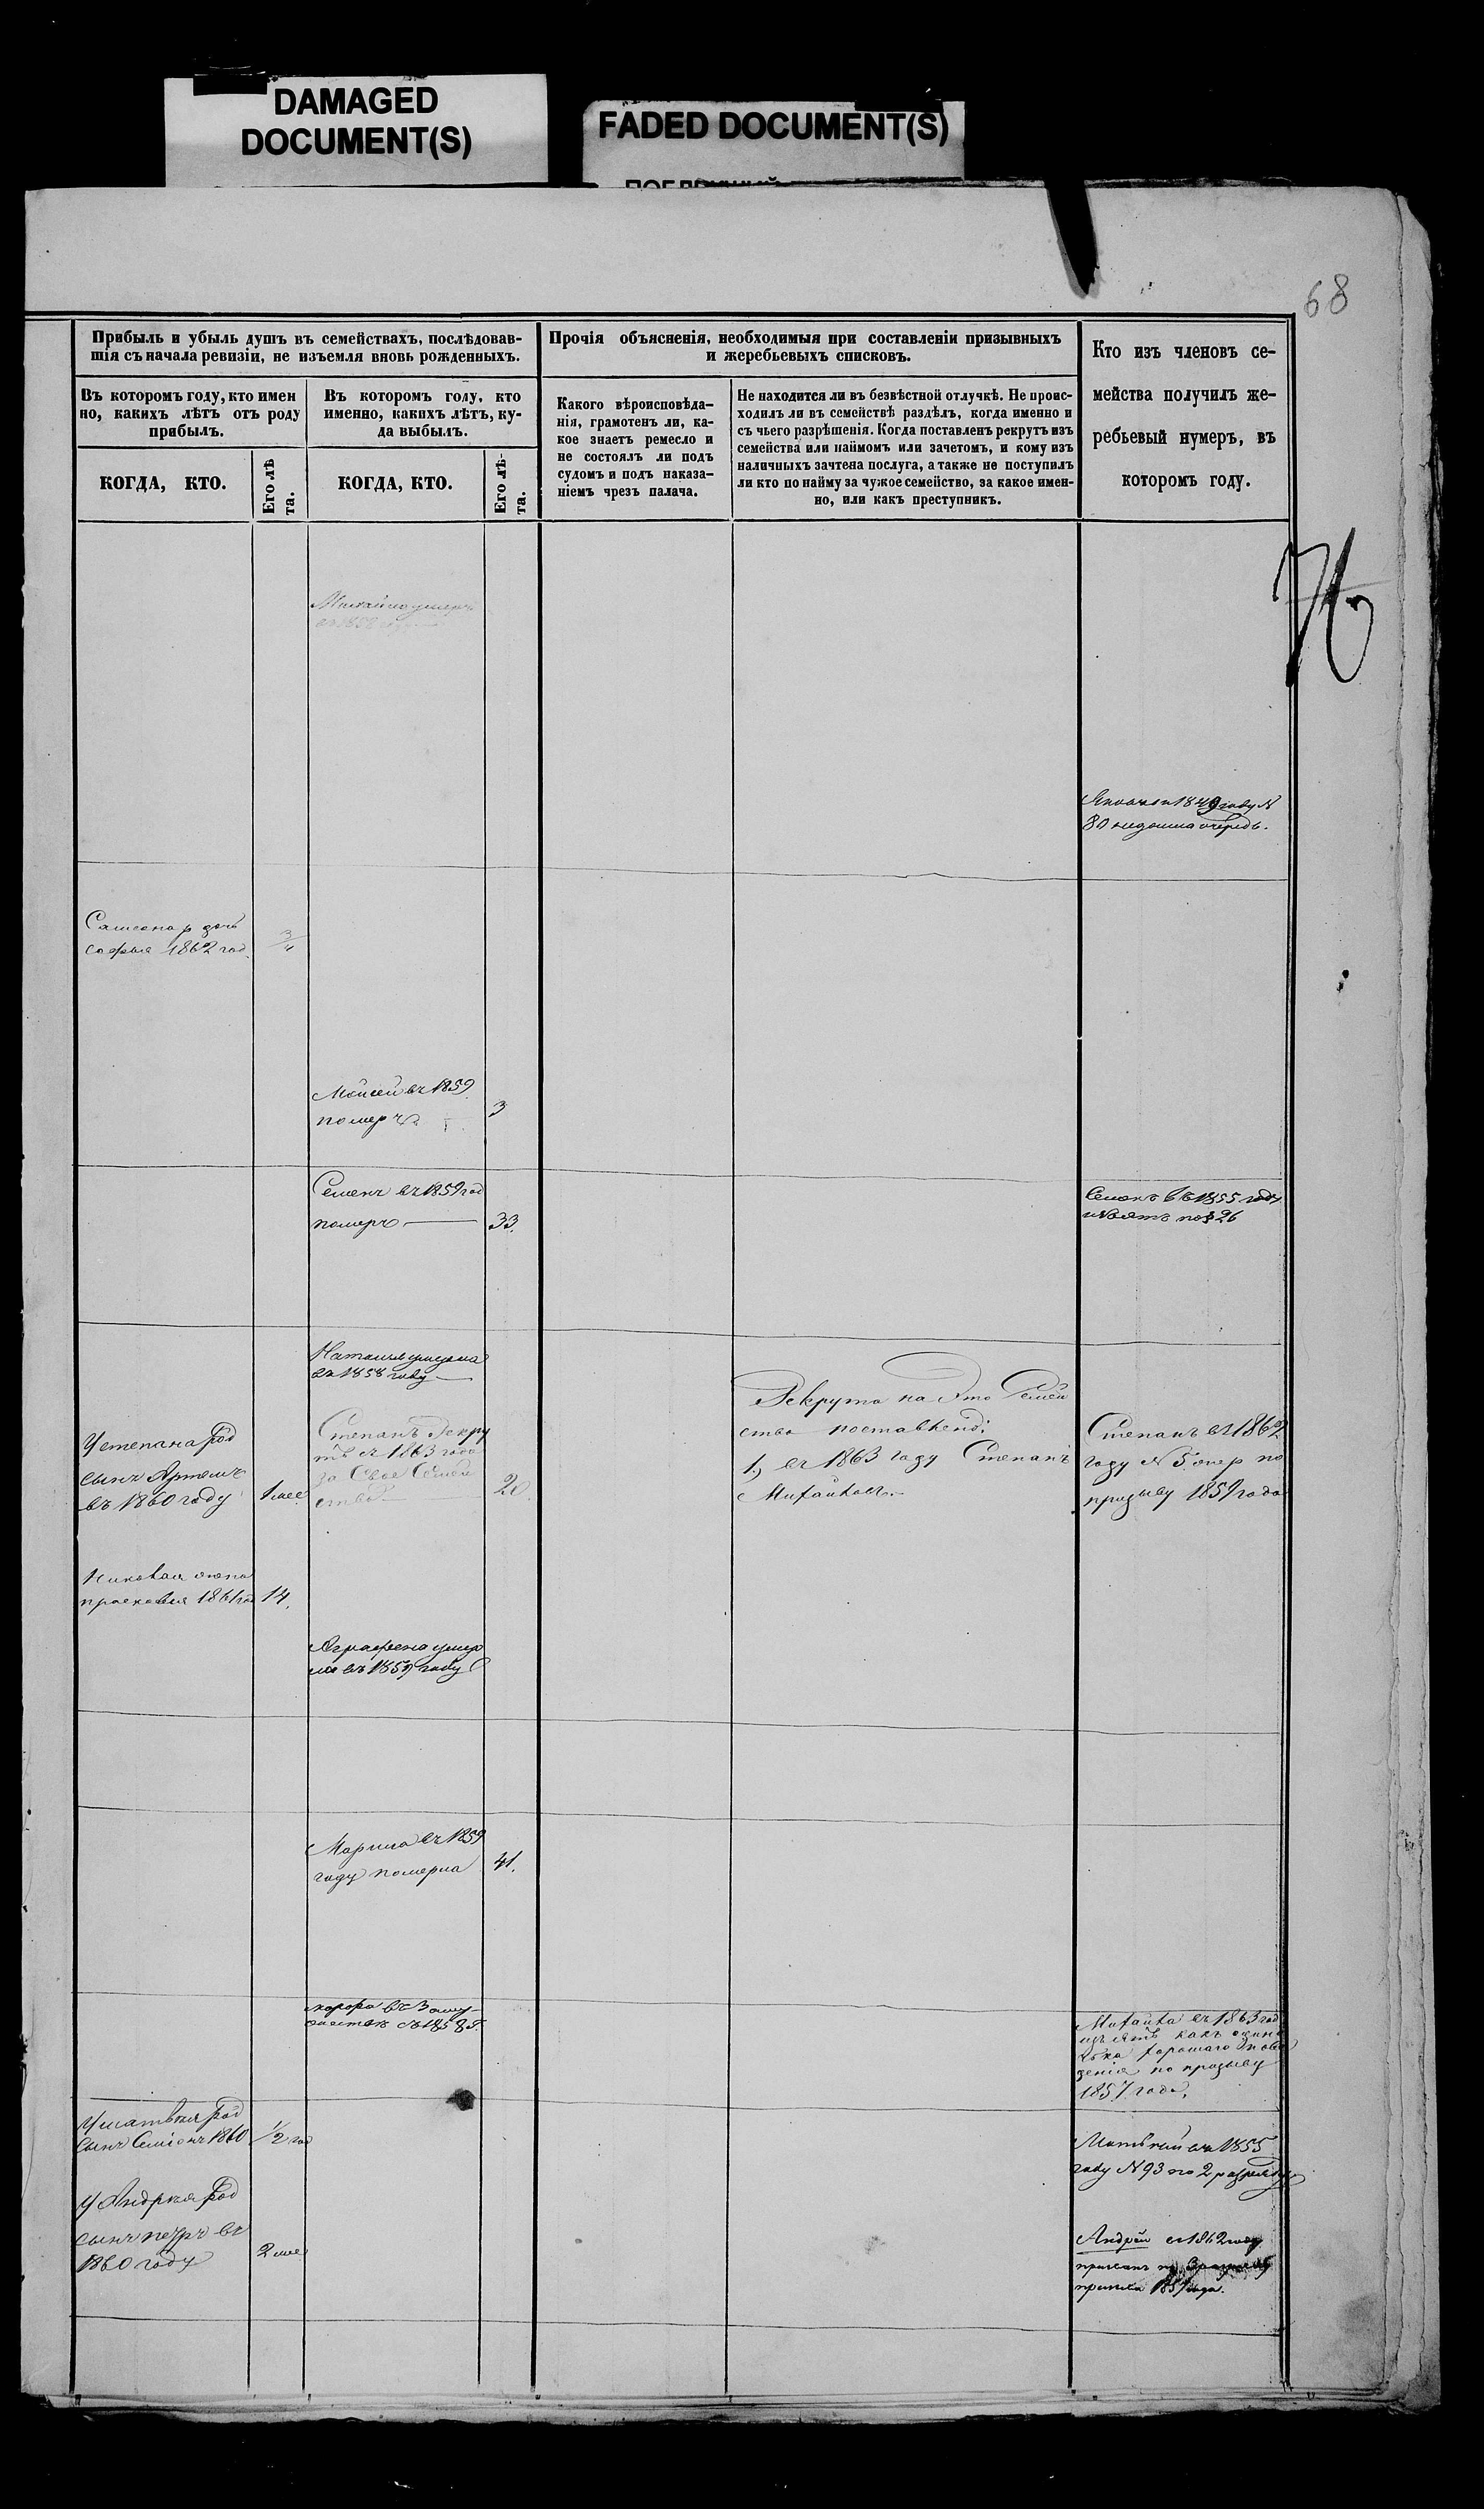 DAMAGED
DOCUMENT(S)
FADED DOCUMENT(S)
68
Прибыль и убыль душъ въ семействахъ, послѣдовав-
шія съ начала ревизіи, не изъемля вновь рожденныхъ.
Прочія объясненія, необходимыя при составленіи призывныхъ
и жеребьевыхъ списковъ.
Кто изъ членовъ се-
мейства получилъ же-
ребьевый нумеръ, въ
которомъ году.
Въ которомъ году, кто имен
но, какихъ лѣтъ отъ роду
прибылъ.
Въ которомъ году, кто
именно, какихъ лѣтъ, ку-
да выбылъ.
Какого вѣроисповѣда-
нія, грамотенъ ли, ка-
кое знаетъ ремесло и
не состоялъ ли подъ
судомъ и подъ наказа-
ніемъ чрезъ палача.
Не находится ли въ безвѣстной отлучкѣ. Не проис-
ходилъ ли въ семействѣ раздѣлъ, когда именно и
съ чьего разрѣшенія. Когда поставленъ рекрутъ изъ
семейства или наймомъ или зачетомъ, и кому изъ
наличныхъ зачтена послуга, а также не поступилъ
ли кто по найму за чужое семейство, за какое имен-
но, или какъ преступникъ.
КОГДА, КТО.
Его лѣ
та.
КОГДА, КТО.
Его лѣ-
та.
Михайло умеръ
въ 1858 году
1849 году N
80 недошла очередь.
дочь
софья 1862 год.
3/4
Моисей въ 1859
померъ
3
Семенъ въ 1859 год
померъ
33.
Семенъ въ 1855 году
26
Наталья умерла
въ 1858 году
Степанъ Рекру
тъ въ 1863 года
за Свое Семей
ство
20.
Рекрута на Это Семей
ство поставлено:
1, въ 1863 году Степанъ
Михайловъ.
Степанъ въ 1862
году N 5. опер по
призыву 1859 года
У степана Род
сынъ Артемъ
въ 1860 году
1 мес.
Николая жена
прасковья 1861 год
14.
Аграфена умер
ла въ 1859 году
Марина въ 1859
году померла
41.
въ 3 аму
съ 1858 г.
Михайла въ 1863 год
изъятъ какъ один
очка хорошаго пове
денія по призыву
1857 года.
У матвея Род
сынъ Семіонъ 1860
1/2 год
Матвѣй въ 1855
году N 93 по 2 разряду
У Андрея Род
сынъ петръ въ
1860 году
2 мес
Андрей въ 1862 году
1859 года.